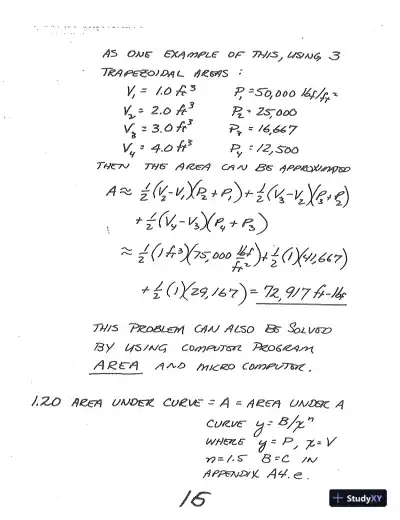 AS ONE EXAMPLE OF THIS, USING 3
TRAPEZOIDAL AREAS :
V₁ = 1.0 ft³ P₁ = 50,000 lbf/ft²
V₂ = 2.0 ft³ P₂ = 25,000
V₃ = 3.0 ft³ P₃ = 16,667
V₄ = 4.0 ft³ P₄ = 12,500
THEN THE AREA CAN BE APPROXIMATED
A ≈ ½(V₂-V₁)(P₂+P₁)+½(V₃-V₂)(P₃+P₂)
+½(V₄-V₃)(P₄+P₃)
≈ ½(1 ft³)(75,000 lbf/ft²)+½(1)(41,667)
+½(1)(29,167) = 72,917 ft-lbf
THIS PROBLEM CAN ALSO BE SOLVED
BY USING COMPUTER PROGRAM
AREA AND MICRO COMPUTER.
1.20 AREA UNDER CURVE = A = AREA UNDER A
CURVE y = B/xⁿ
WHERE y = P, x = V
n = 1.5 B = C IN
APPENDIX A4.e.
16
+ StudyXY